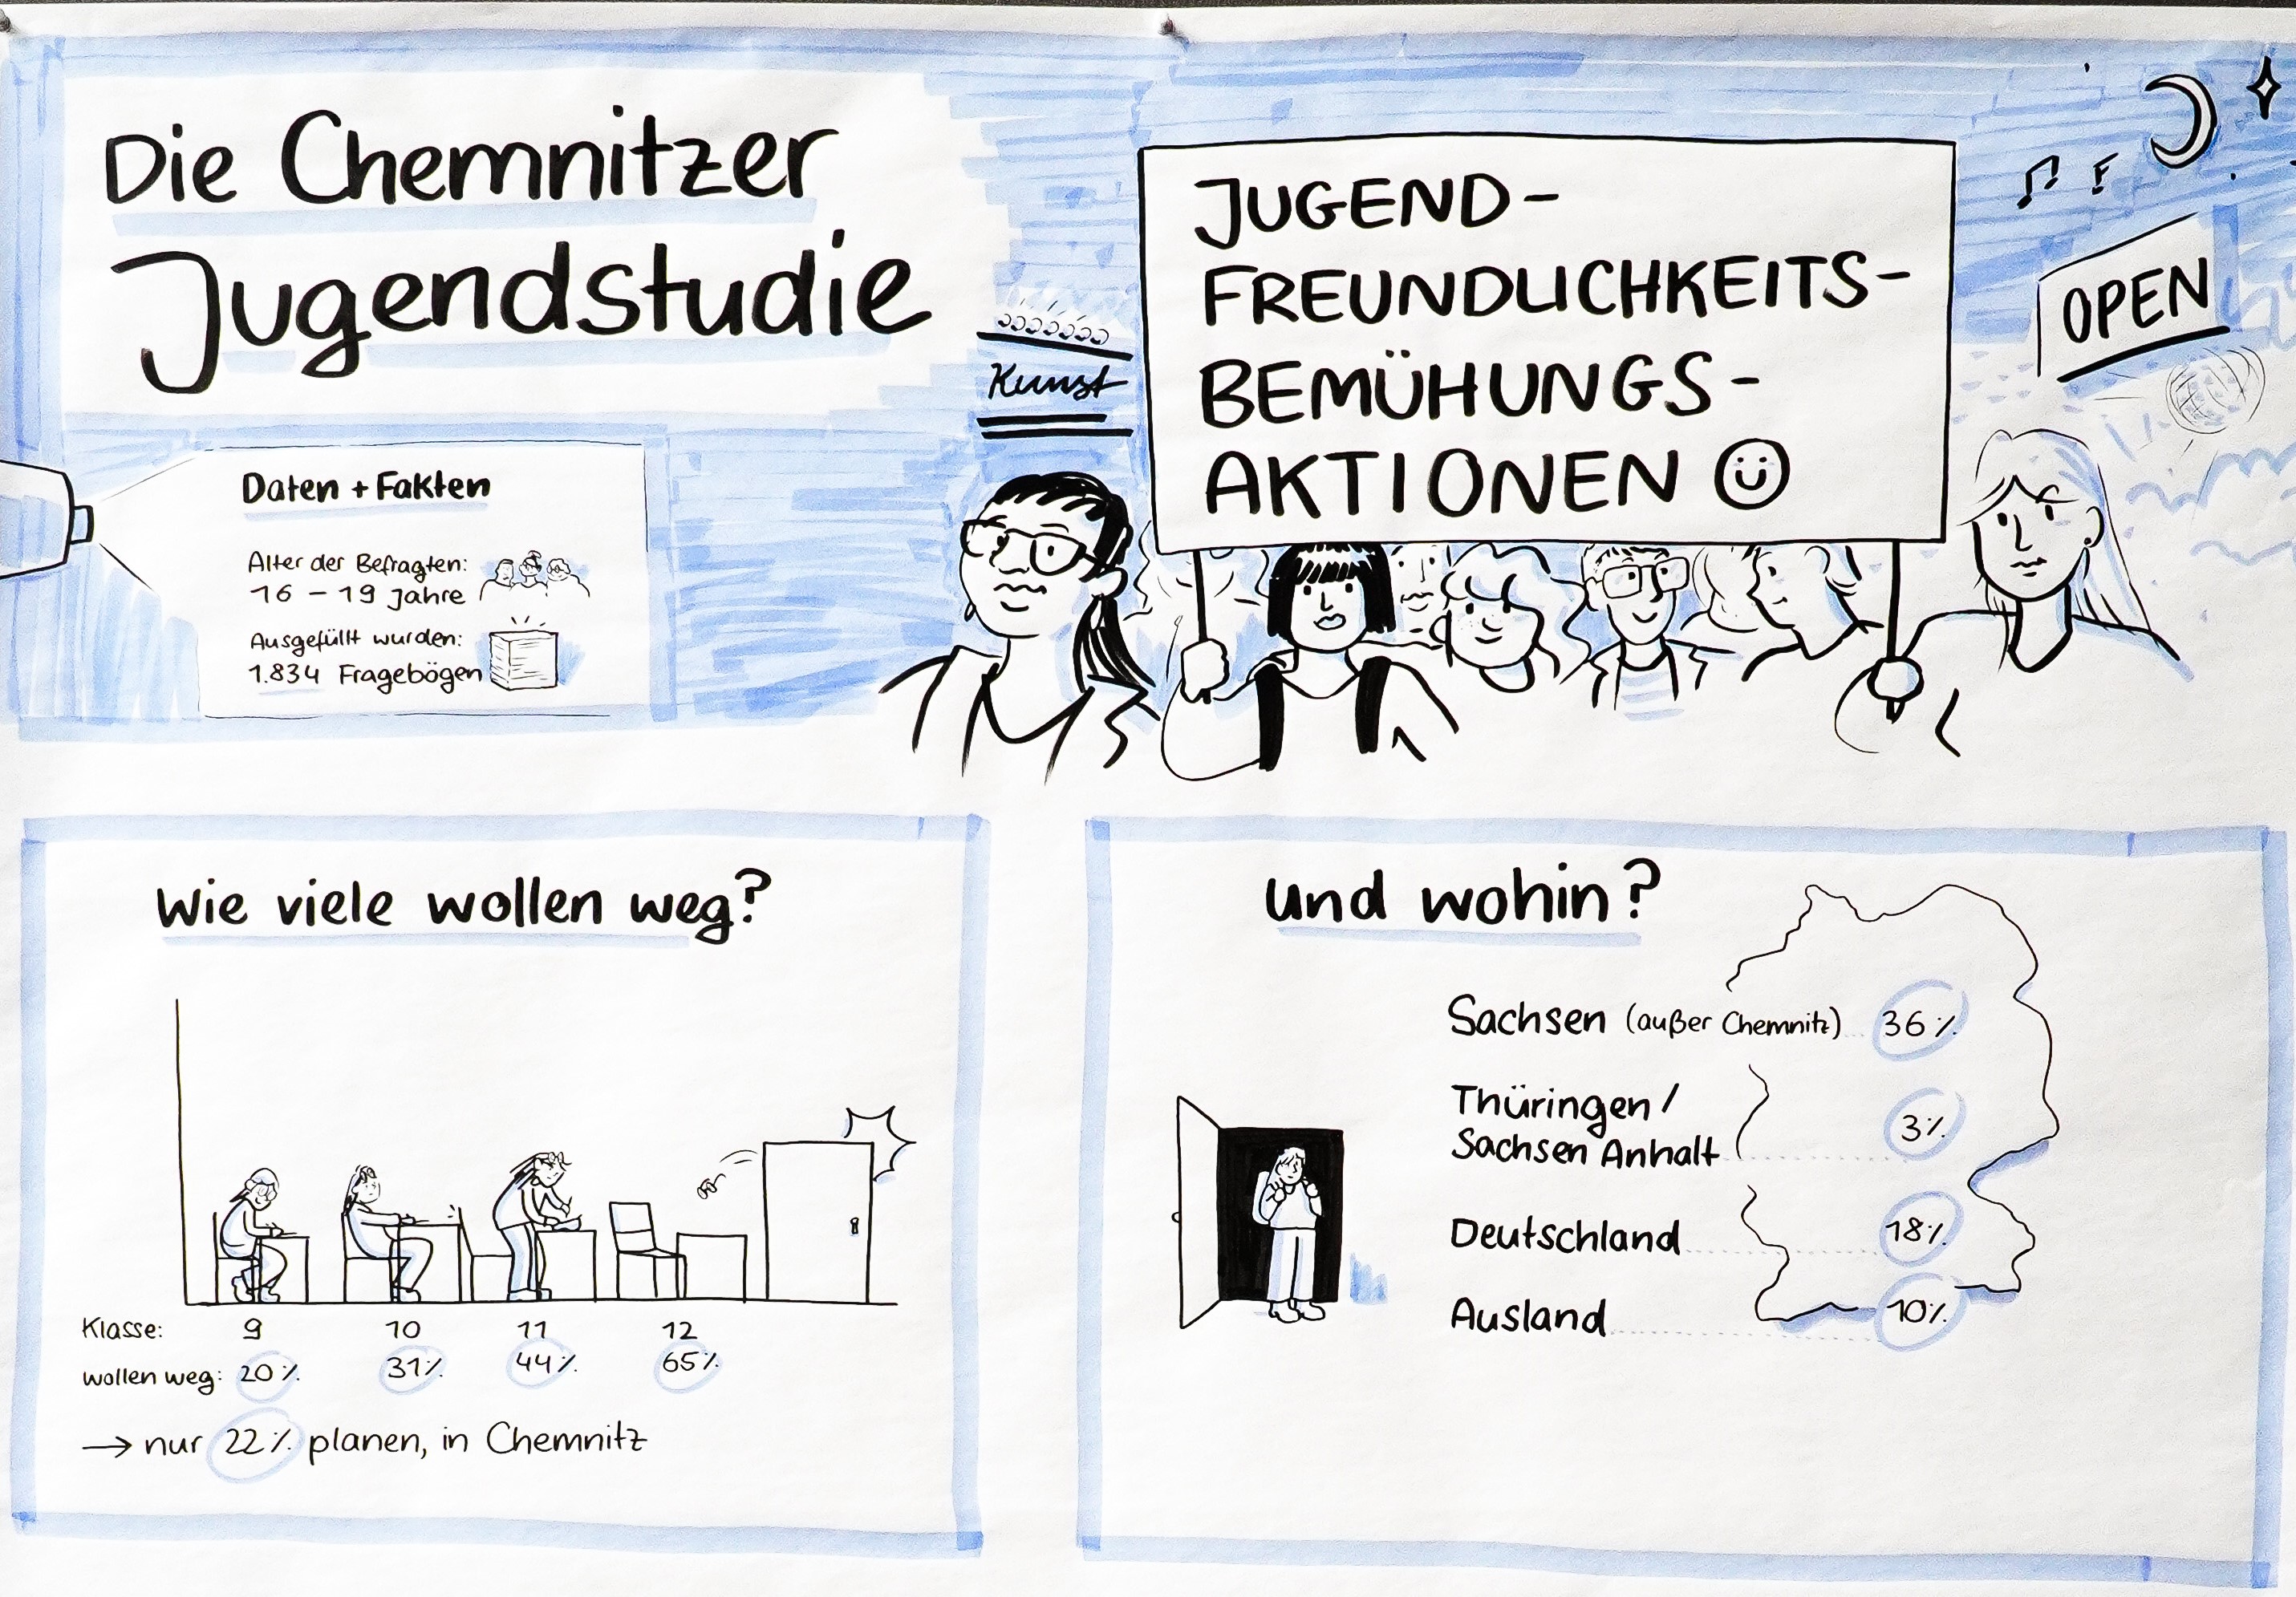 Die Chemnitzer
Jugendstudie
Daten + Fakten
Alter der Befragten:
16 – 19 Jahre
Ausgefüllt wurden:
1.834 Fragebögen
Kunst
JUGEND-
FREUNDLICHKEITS-
BEMÜHUNGS-
AKTIONEN
OPEN
Wie viele wollen weg?
Klasse: 9 10 11 12
wollen weg: 20% 31% 44% 65%
→ nur 22% planen, in Chemnitz
und wohin?
Sachsen (außer Chemnitz) 36%
Thüringen/
Sachsen Anhalt 3%
Deutschland 18%
Ausland 10%